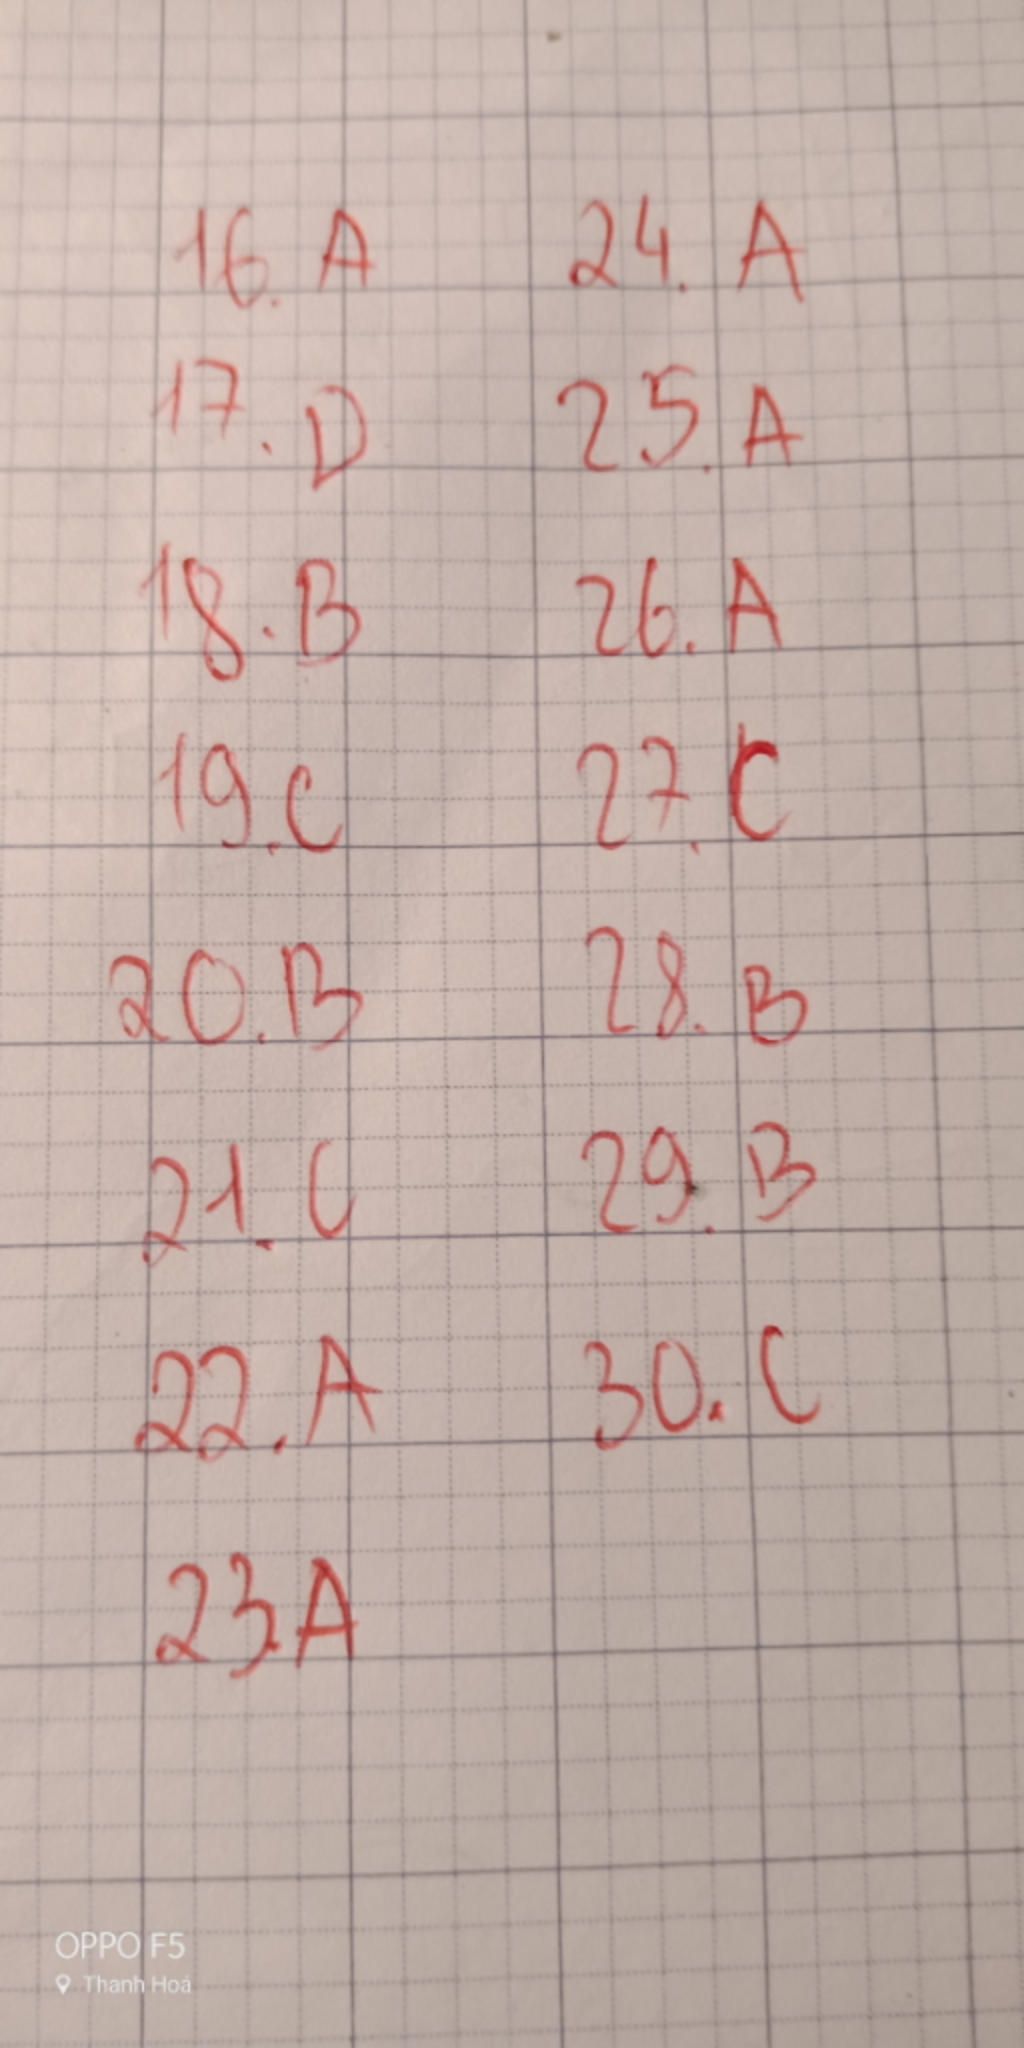 16. A
17. D
18. B
19. C
20. B
21. C
22. A
23. A
24. A
25. A
26. A
27. C
28. B
29. B
30. C
OPPO F5
Thanh Hoá